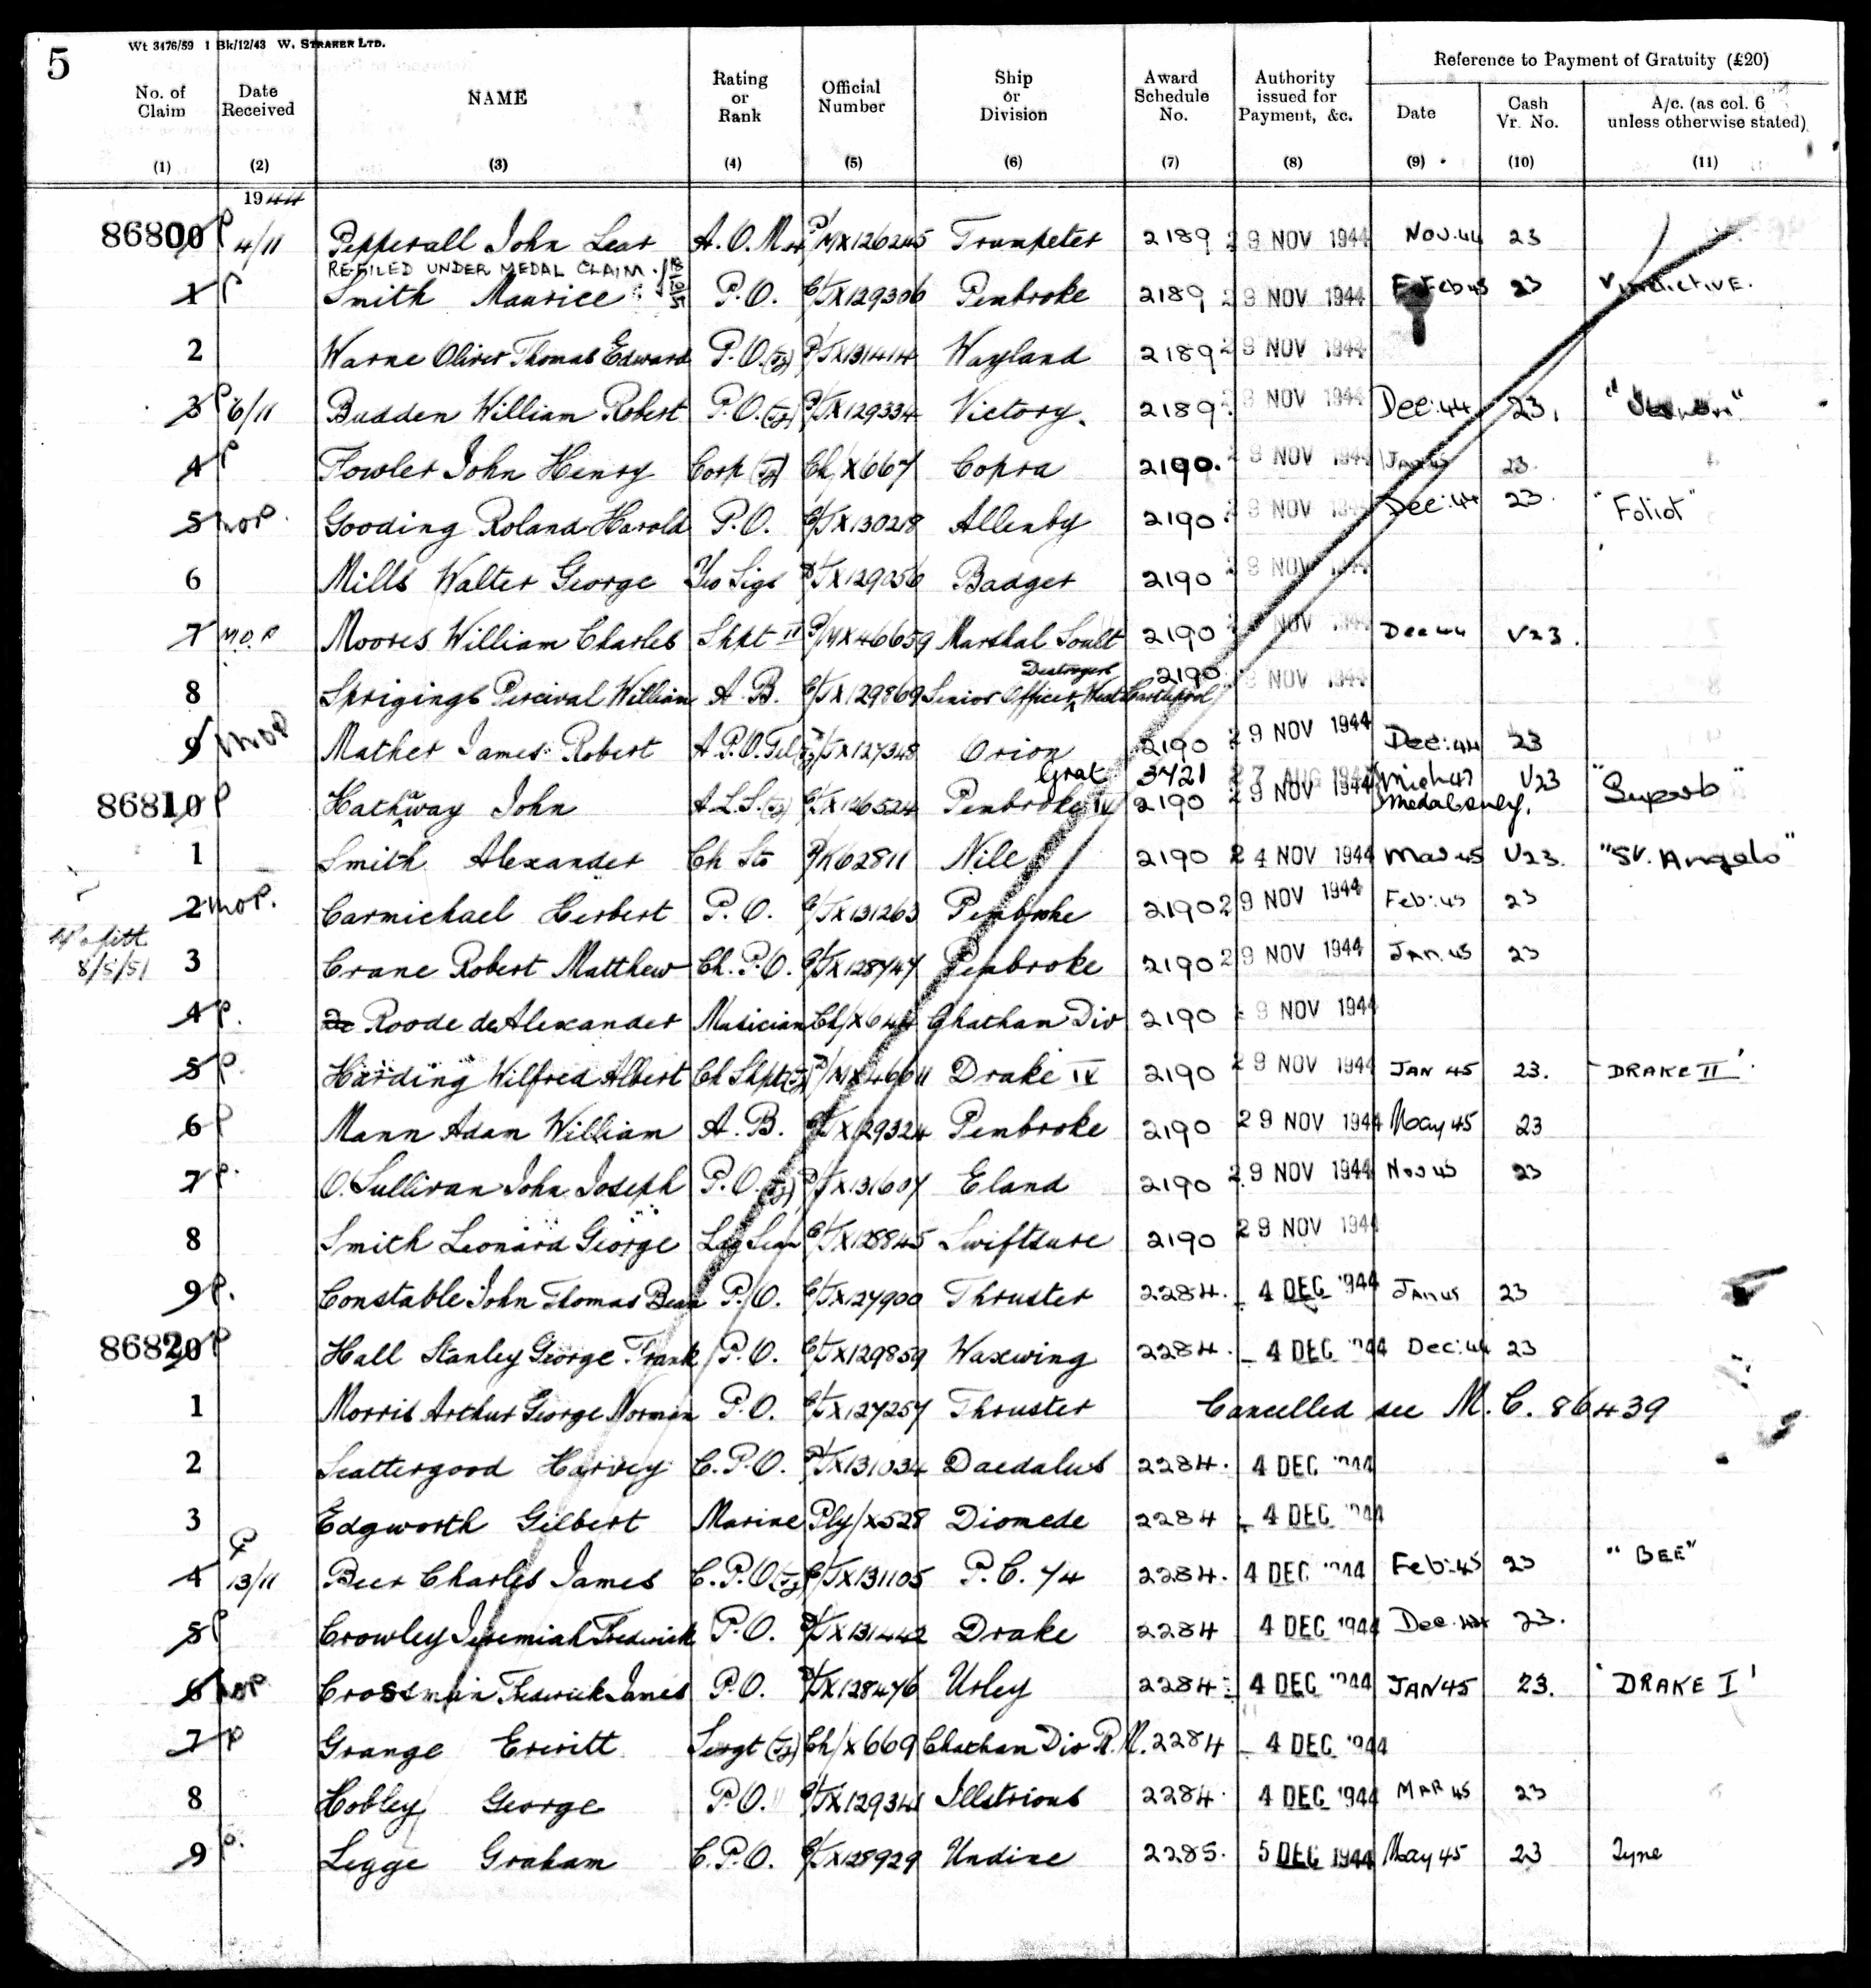 5
Wt 3476/59 1 Bk/12/43 W. STRAKER LTD.
No. of Claim (1) Date Received (2) NAME (3) Rating or Rank (4) Official Number (5) Ship or Division (6) Award Schedule No. (7) Authority issued for Payment, &c. (8) Reference to Payment of Gratuity (£20) Date (9) Cash Vr. No. (10) A/c. (as col. 6 unless otherwise stated) (11)
1944
86800 P 4/11 Pepperall John Lear A.O.M. P/MX126245 Trumpeter 2189 29 NOV 1944 Nov.44 23
REFILED UNDER MEDAL CLAIM.
1 P Smith Maurice P.O. C/JX129306 Pembroke 2189 29 NOV 1944 Feb 45 23 Vindictive.
2 Warne Oliver Thomas Edward P.O.(Ty) P/JX131414 Wayland 2189 29 NOV 1944
3 P 6/11 Budden William Robert P.O.(Ty) P/JX129334 Victory. 2189. 29 NOV 1944 Dec:44 23.
4 P Fowler John Henry Corp (Ty) Ch/X667 Copra 2190. 29 NOV 1944 Jan 45 23.
5 MOP. Gooding Roland Harold P.O. C/JX130218 Allenby 2190. 29 NOV 1944 Dec:44 23. "Foliot"
6 Mills Walter George Yeo Sigs D/JX129056 Badger 2190 29 NOV 1944
7 M.O.P Moores William Charles Shpt II P/MX46659 Marshal Soult 2190 29 NOV 1944 Dec 44 V23.
8 Sprigings Percival William A.B. C/JX129869 Senior Officer Destroyers West Hartlepool 2190 29 NOV 1944
9 MOP Mather James Robert A.P.O.Tel(Ty) JX127348 Orion 2190 29 NOV 1944 Dec:44 23
Grat 3421 27 AUG 194 Mich 47 V23 "Superb"
86810 P Hathway John A.L.S.(Ty) C/JX126524 Pembroke IV 2190 29 NOV 1944 Medal only.
1 Smith Alexander Ch Sto P/K62811 Nile 2190 24 NOV 1944 Mar 45 V23. "St. Angelo"
2 MOP. Carmichael Herbert P.O. C/JX131263 Pembroke 2190 29 NOV 1944 Feb:45 23
8/5/51 3 Crane Robert Matthew Ch.P.O. C/JX128747 Pembroke 2190 29 NOV 1944 Jan.45 23
4 P. De Roode de Alexander Musician Ch/X644 Chatham Div 2190 29 NOV 1944
5 P. Harding Wilfred Albert Ch Shpt(Ty) D/MX46611 Drake IV 2190 29 NOV 1944 JAN 45 23. 'DRAKE II'.
6 P Mann Adam William A.B. C/JX129324 Pembroke 2190 29 NOV 1944 May 45 23
7 P. O.Sullivan John Joseph P.O.(Ty) P/JX131607 Eland 2190 29 NOV 1944 Nov 45 23
8 Smith Leonard George Ldg Sean C/JX128845 Swiftsure 2190 29 NOV 1944
9 P. Constable John Thomas Bean P.O. C/JX127900 Thruster 2284. 4 DEC 1944 Jan 45 23
86820 P Hall Stanley George Frank P.O. C/JX129859 Waxwing 2284. 4 DEC 1944 Dec:44 23
1 Morris Arthur George Norman P.O. C/JX127257 Thruster Cancelled see M.C. 86439
2 Scattergood Harvey C.P.O. P/JX131034 Daedalus 2284. 4 DEC 1944
3 Edgworth Gilbert Marine Ply/X528 Diomede 2284 4 DEC 1944
4 P 13/11 Beer Charles James C.P.O(Ty) C/JX131105 P.C. 74 2284. 4 DEC 1944 Feb:45 23 "BEE"
5 P Crowley Jeremiah Frederick P.O. D/JX131442 Drake 2284 4 DEC 1944 Dec.44 23.
6 MOP Crossman Frederick James P.O. D/JX128476 Urley 2284. 4 DEC 1944 JAN 45 23. 'DRAKE I'
7 P Grange Everitt Sergt (Ty) Ch/X669 Chatham Div R.M. 2284 4 DEC 1944
8 Hobley George P.O. C/JX129341 Illstrious 2284. 4 DEC 1944 MAR 45 23
9 P. Legge Graham C.P.O. C/JX128929 Undine 2285. 5 DEC 1944 May 45 23 Tyne